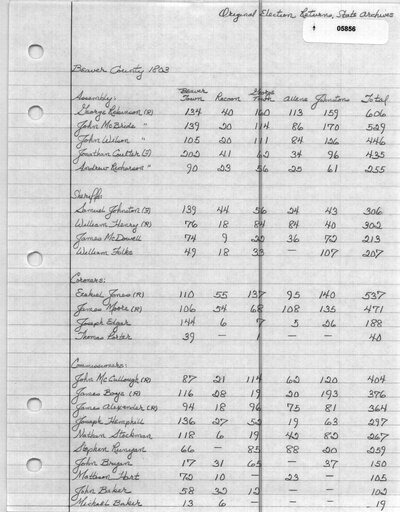 Original Election Returns, State Archives
05856
Beaver County 1803
Beaver George
Assembly: Town Racoon Allens Johnstons Total
George Robinson (R) 134 40 160 113 159 606
John McBride " 139 20 114 86 170 529
John Wilson " 105 20 111 84 126 446
Jonathan Coulter (F) 202 41 62 34 96 435
Andrew Richardson " 90 23 56 25 61 255
Sheriff:
Samuel Johnston (F) 139 44 56 24 43 306
William Henry (R) 76 18 84 84 40 302
James McDowell 74 9 22 36 72 213
William Foulks 49 18 33 107 207
Coroners:
Ezekiel Jones (R) 110 55 137 95 140 537
James Moore (R) 106 54 68 108 135 471
Joseph Edgar 144 6 7 5 26 188
Thomas Porter 39 — 1 — — 40
Commissioners:
John McCullough (R) 87 21 114 62 120 404
James Boys (R) 116 28 19 20 193 376
James Alexander (R) 94 18 96 75 81 364
Joseph Hemphill 136 27 52 19 63 297
Nathan Stockman 118 6 19 42 82 267
Stephen Runyan 66 — 85 88 20 259
John Bryan 17 31 65 — 37 150
Matteson Hart 72 10 — 23 — 105
John Baker 58 32 12 — — 102
Michael Baker 13 6 — — — 19